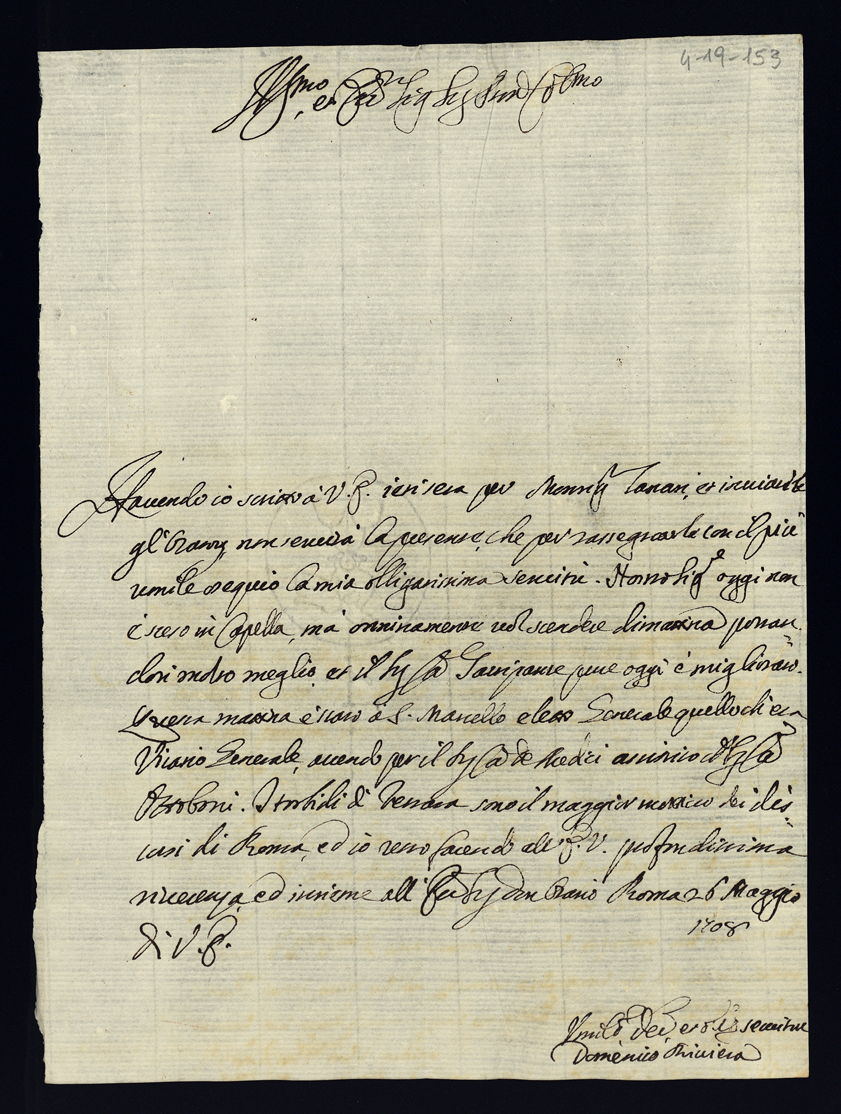 4-19-153
Ill.mo et Ecc. Sig. Sig. Pron. Col.mo
Havendo io scritto à V. E. ieri sera per Monsig. Tanari, et inviatole
gl'Orarij, non servirà la presente, che per rassegnarle con il più
umile ossequio la mia obligatissima servitù. Nostro Sig.e oggi non
è sceso in Capella, mà onninamente vol scendere dimattina portan-
dosi molto meglio, et il Sig. Ca. Sacripante pure oggi è migliorato.
Questa mattina è stato à S. Marcello eletto Generale quello ch'era
Vicario Generale, avendo per il Sig. Ca. de Medici assistito il Sig. Ca.
Ottoboni. I torbidi di Ferrara sono il maggior motivo dei dis-
corsi di Roma, ed io resto facendo all'E. V. profondissima
riverenza, ed insieme all' Ecc. Sig. Don Orazio Roma 26 Maggio
1708
Di V. E.
Umil. Dev. et Obl. servitore
Domenico Riviera